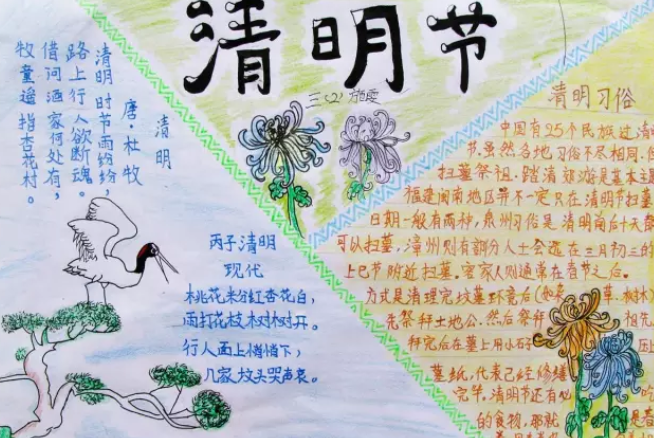 清明节
三(2) 施雯
清明
唐·杜牧
清明时节雨纷纷,
路上行人欲断魂。
借问酒家何处有,
牧童遥指杏花村。
丙子清明
现代
桃花米分红杏花白,
雨打花枝树树开。
行人面上悄悄下,
几家坟头哭声哀。
清明习俗
中国有25个民族过清
节.虽然各地习俗不尽相同,但
扫墓祭祖.踏清郊游是基本主
福建闽南地区并不一定只在清明节扫墓
日期一般有两种,泉州习俗是清明前后十天都
可以扫墓,漳州则有部分人士会选在三月初三的
上巳节附近扫墓。客家人则通常在春节之后。
方式是清理完坟墓环境后(如 草.树木)
先祭拜土地公.然后祭拜 祖先.
拜完后在墓上用小石子 压
墓纸,代表已经修缮
完毕.清明节还有 吃
的食物,那就 是春